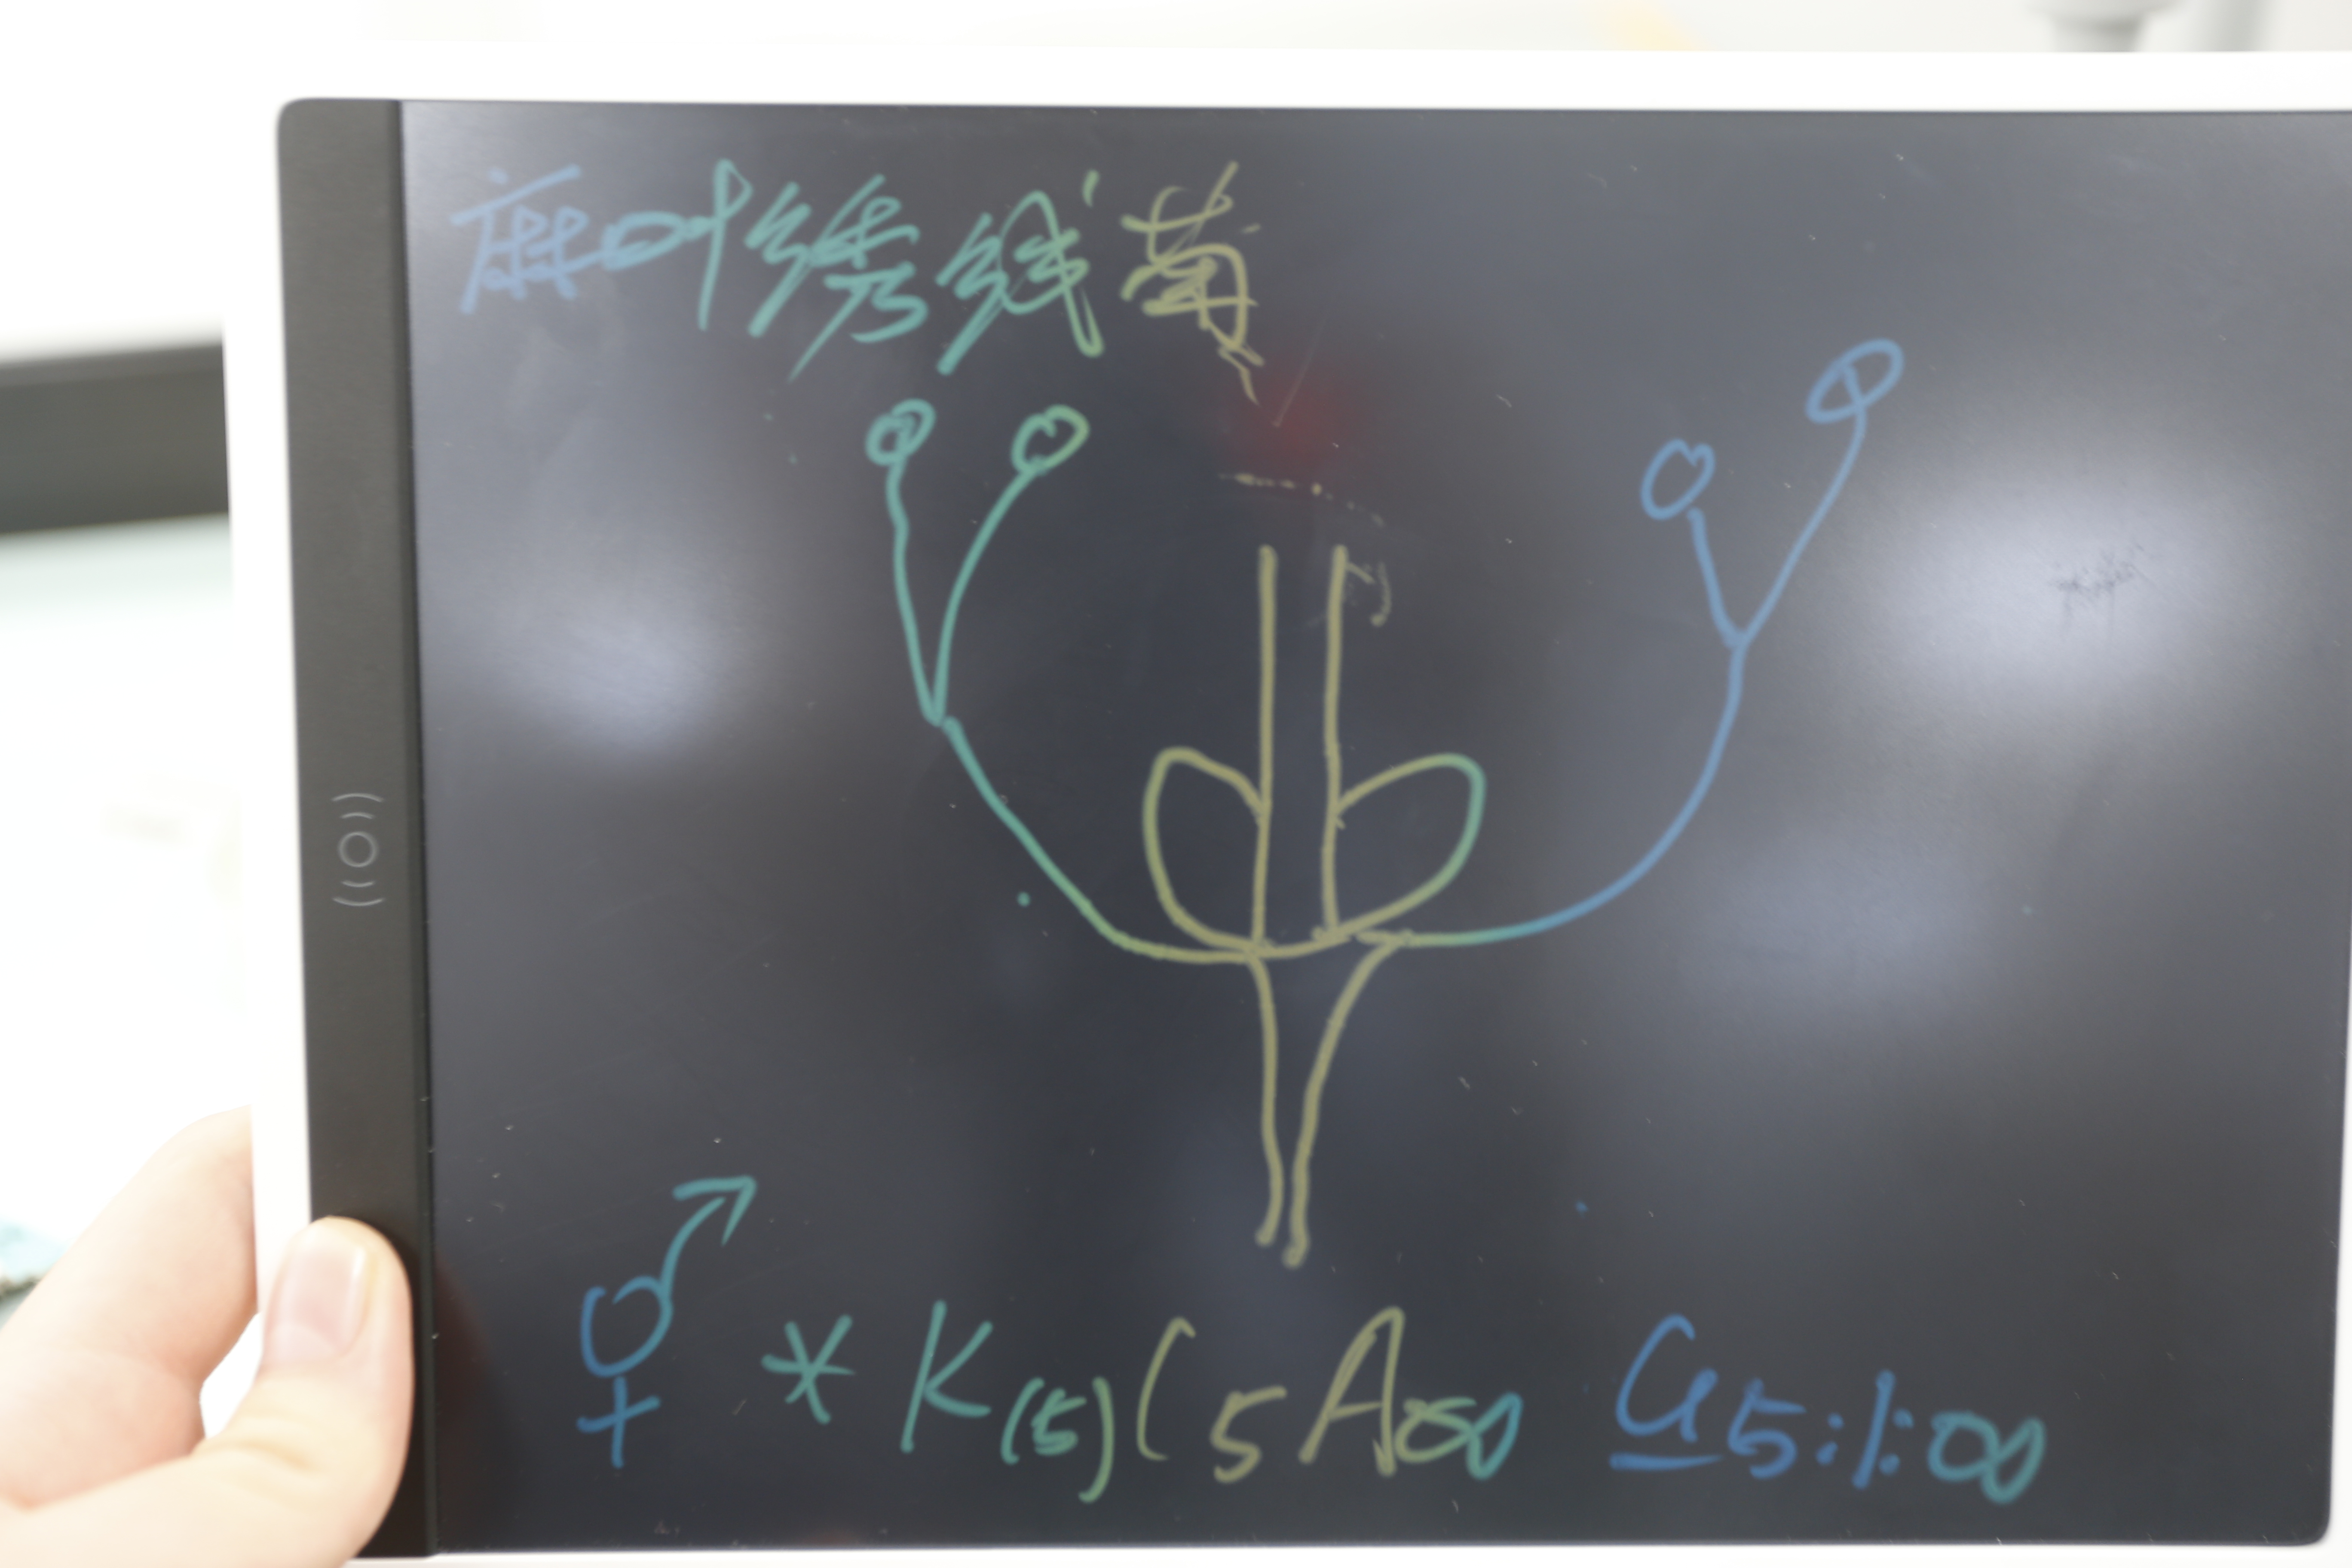 麻叶绣线菊
⚥ * K(5) C5 A∞ G5:1:∞